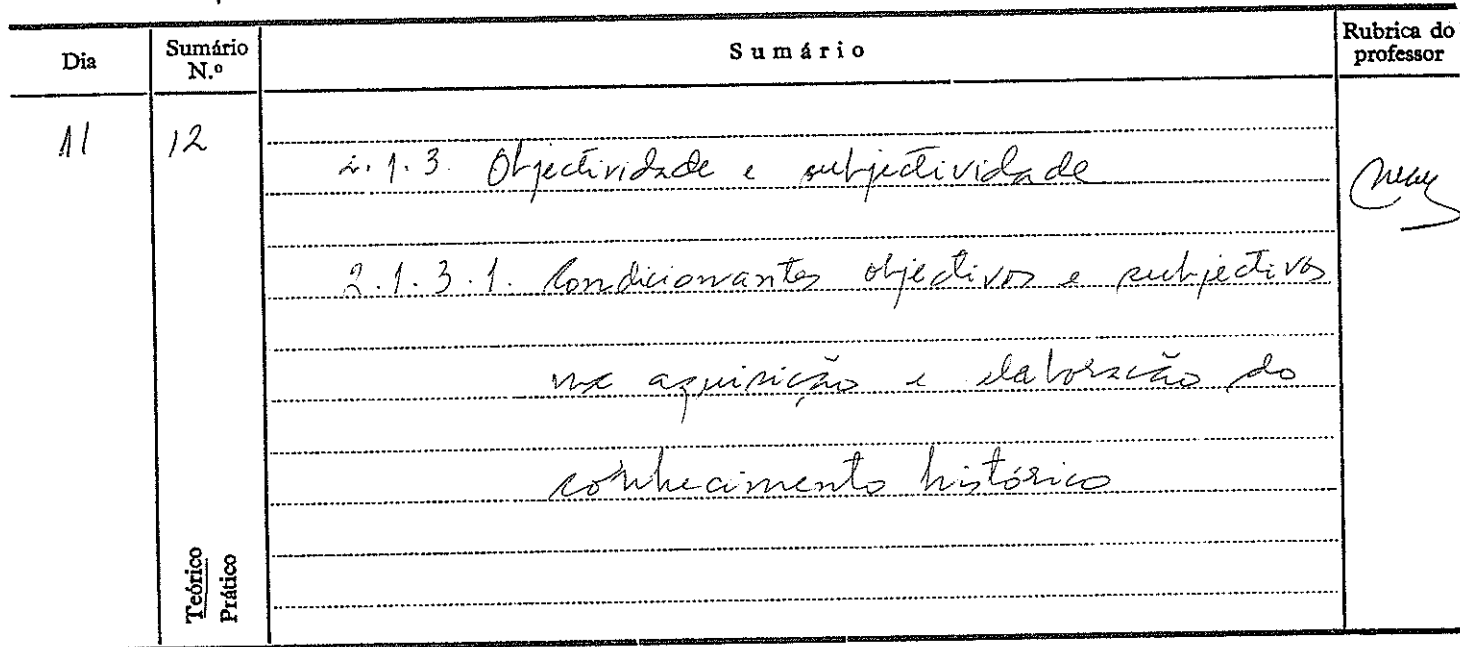 Dia
Sumário N.º
Sumário
Rubrica do professor
11
12
2.1.3. Objectividade e subjectividade
2.1.3.1. Condicionantes objectivos e subjectivos
na aquisição e elaboração do
conhecimento histórico
Teórico
Prático